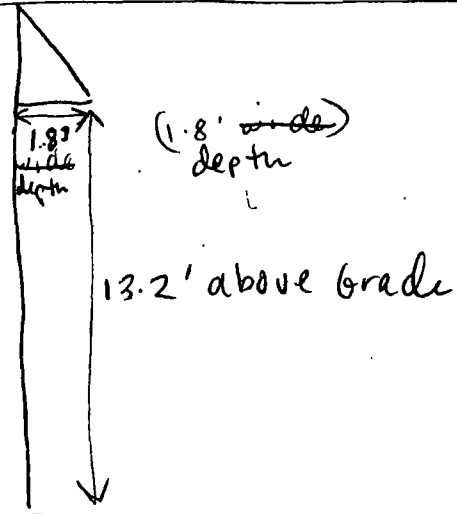 1.83
wide
depth
(1.8' wide)
depth
13.2' above Grade